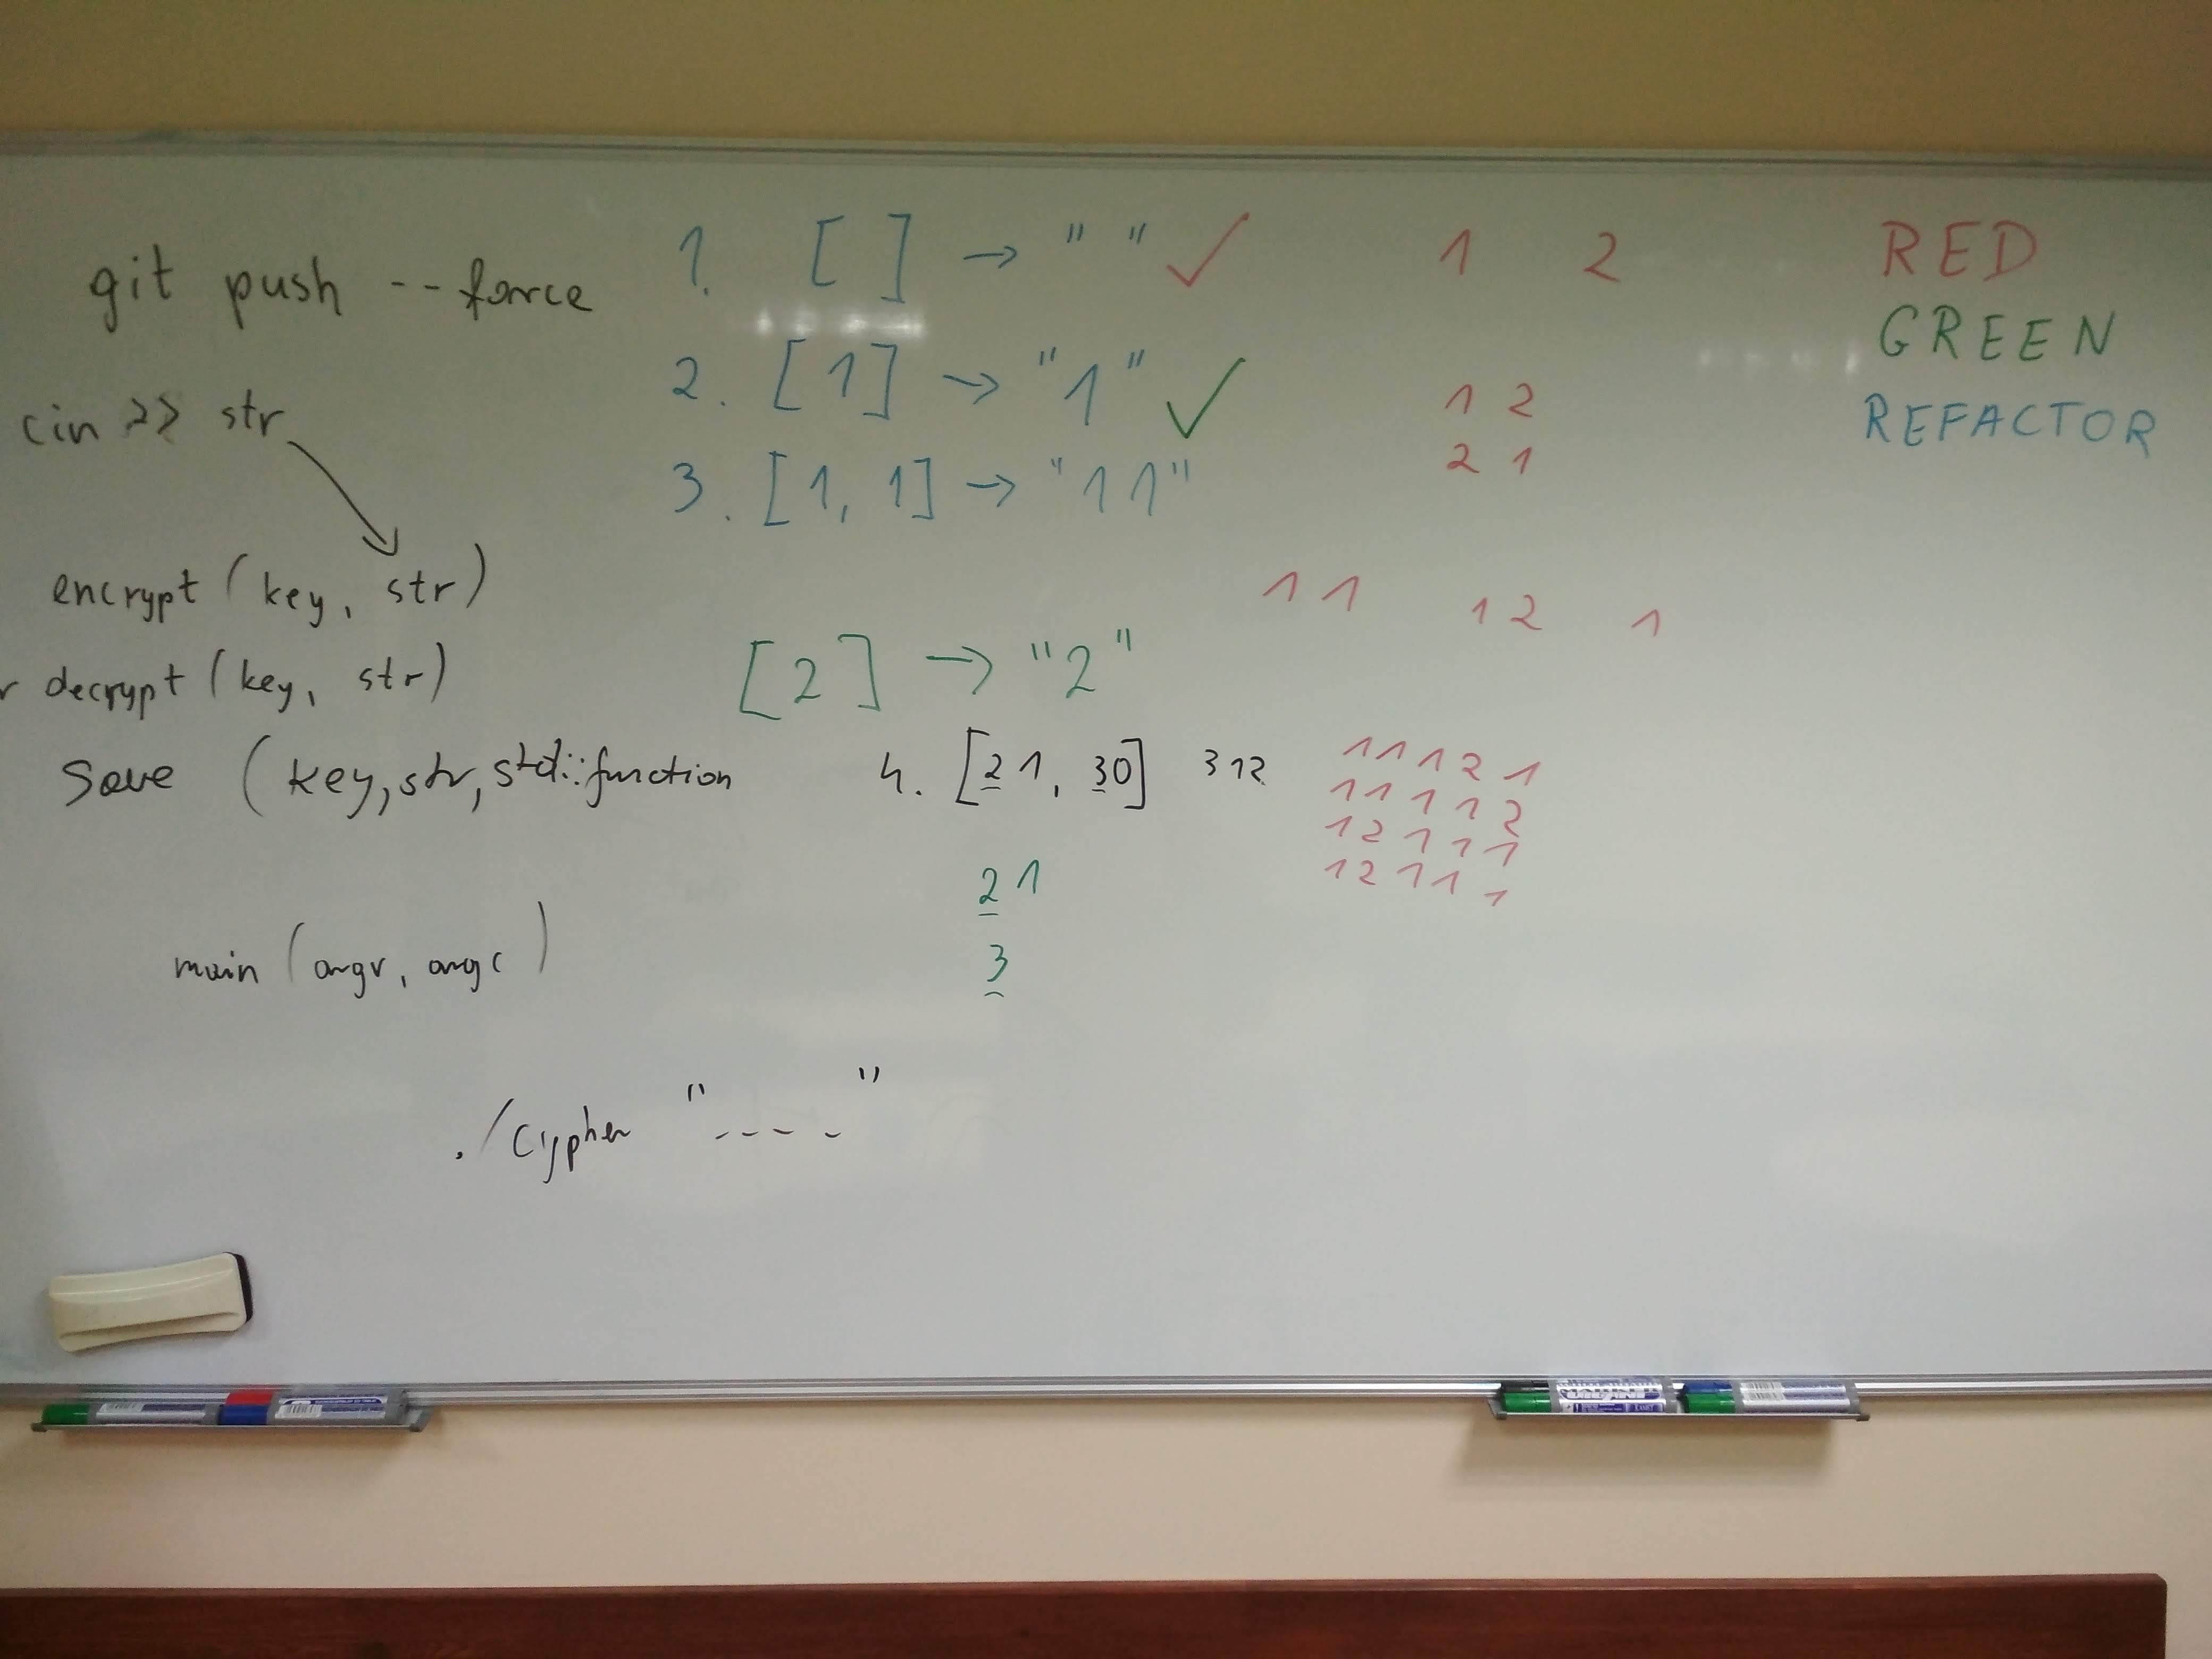 git push --force
cin >> str
encrypt (key, str)
decrypt (key, str)
Save (key, str, std::function
main (argv, argc)
./cypher "----"
1. [ ] → " " ✓
2. [1] → "1" ✓
3. [1, 1] → "11"
[2] → "2"
4. [21, 30] 312
21
3
1 2
1 2
2 1
11 12 1
11121
11112
12111
12111
RED
GREEN
REFACTOR